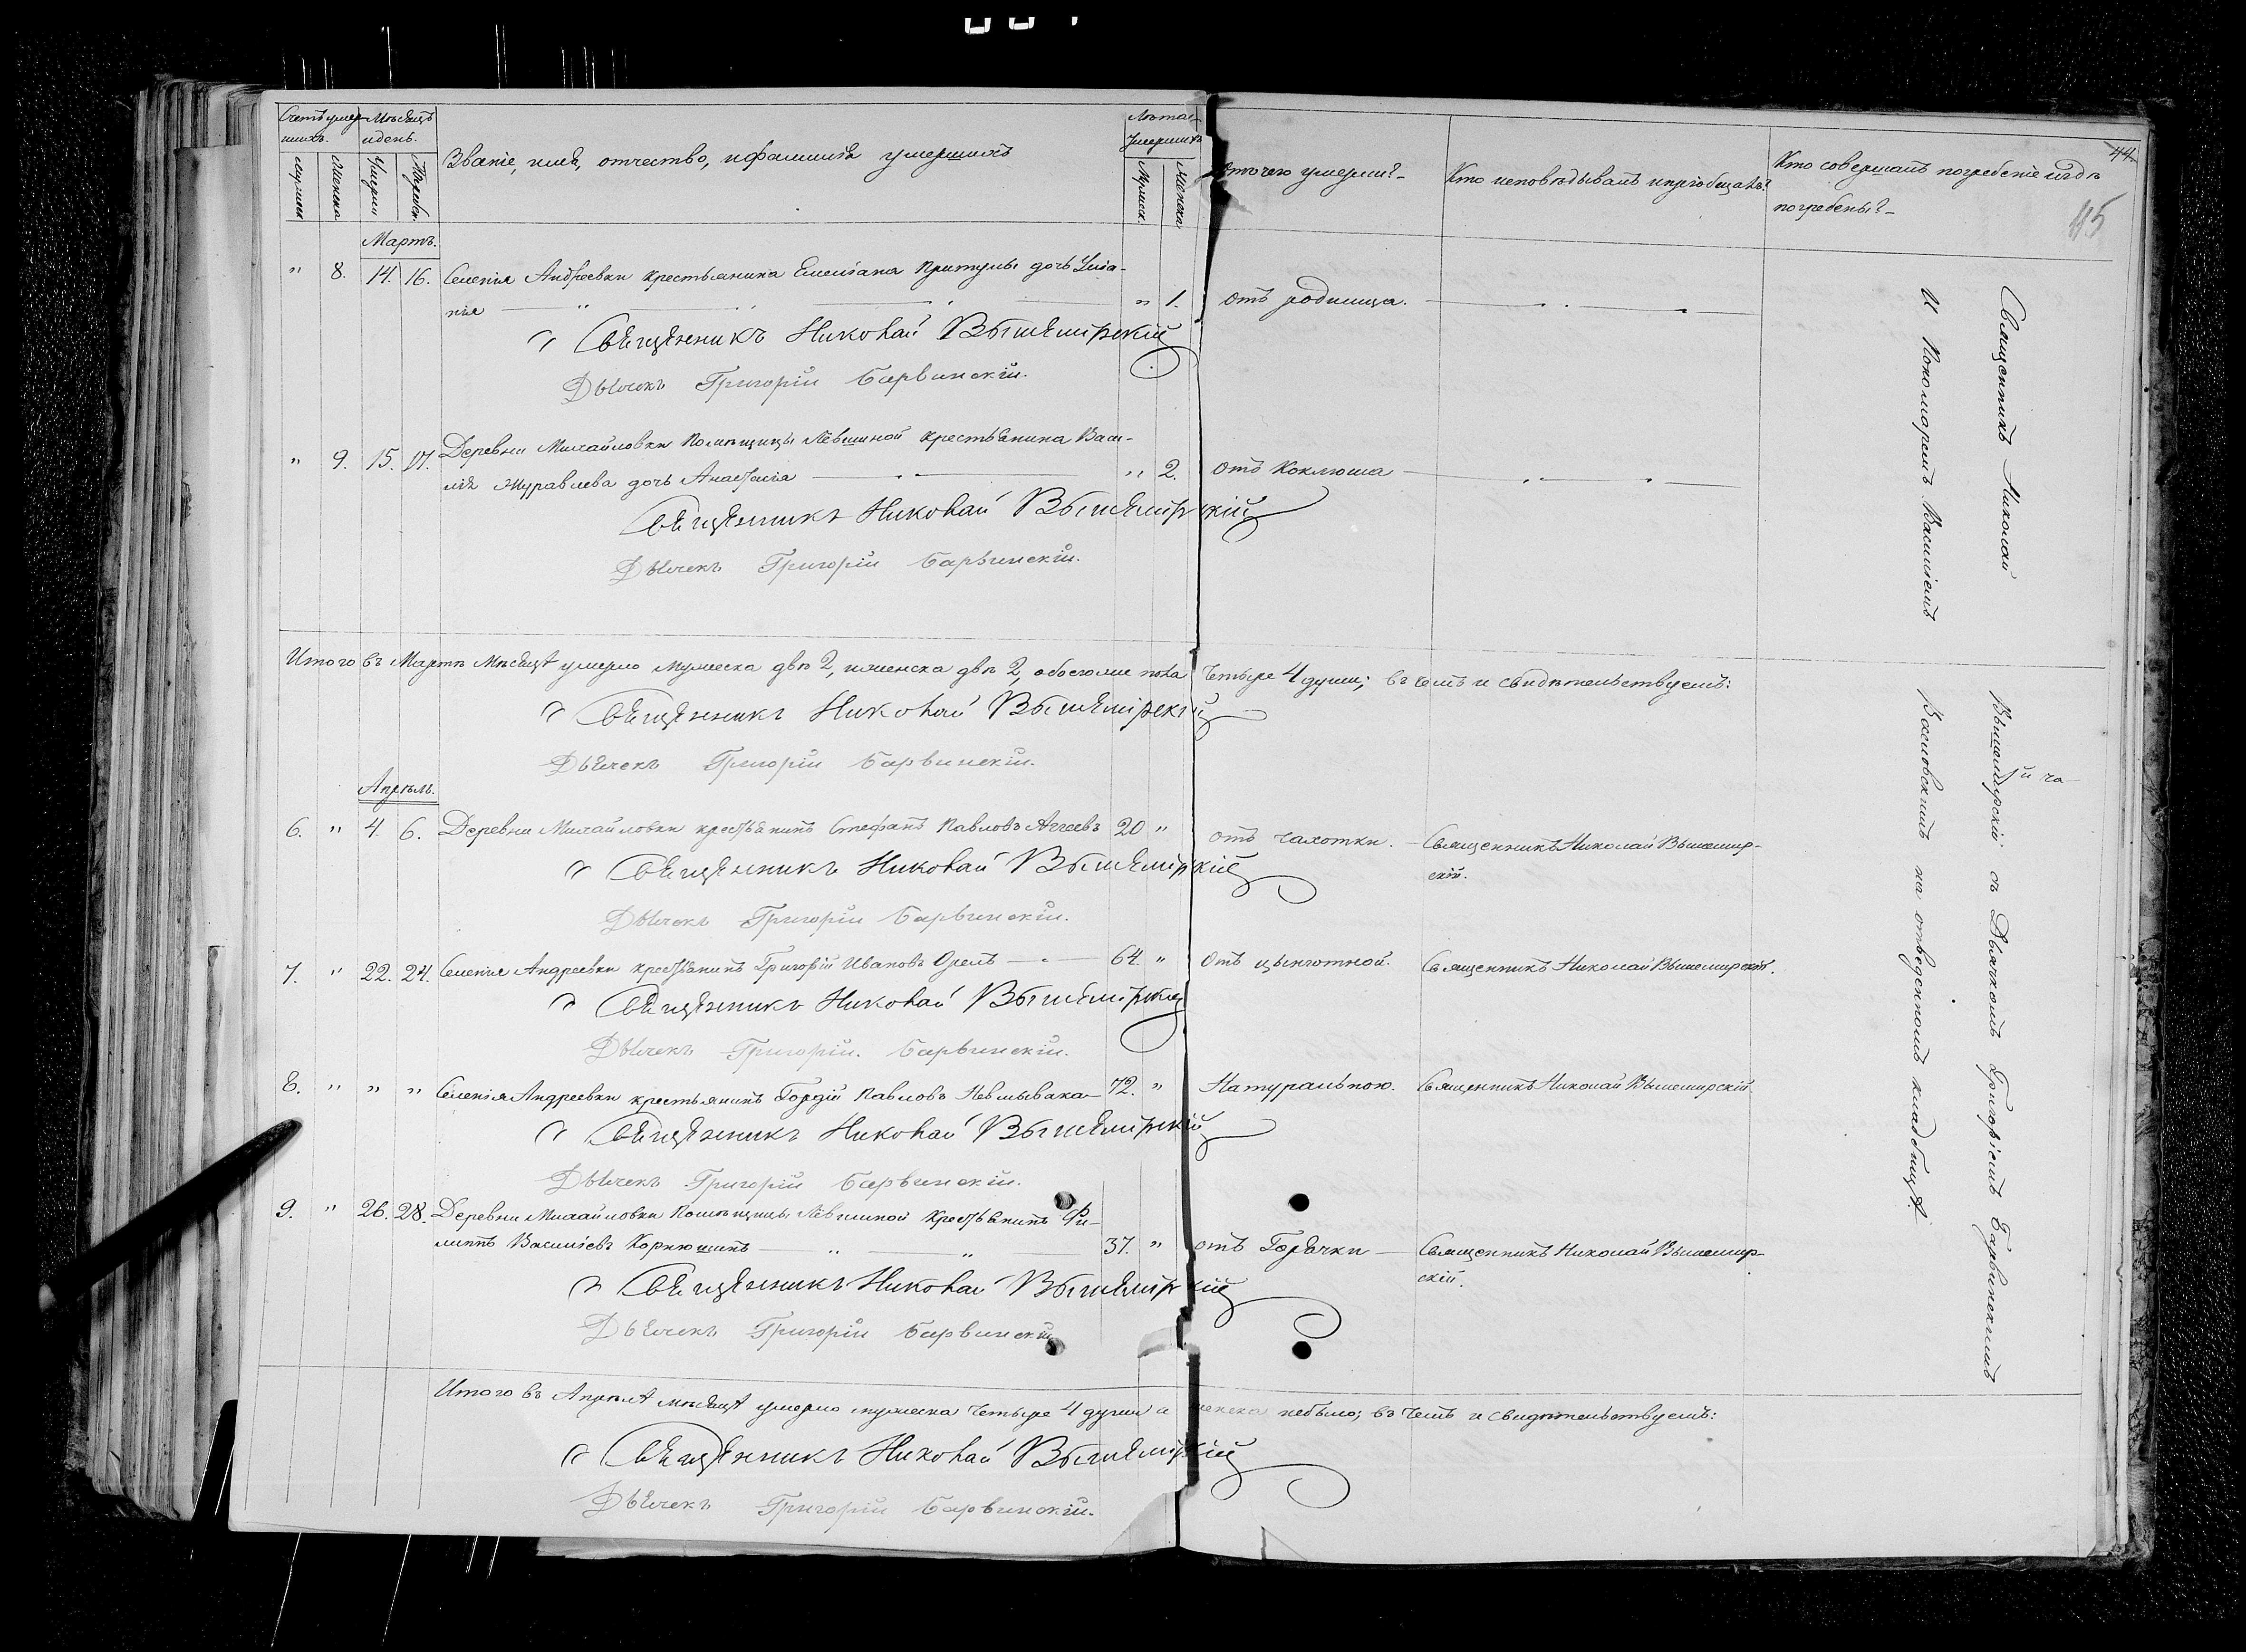 Счетъ умер-
шихъ.
Мѣсяцъ
и день.
Званіе, имя, отчество, и фамилія умершихъ
Лѣта
умершихъ
Отъ чего умерли?
Кто исповѣдывалъ и пріобщалъ?
Кто совершалъ погребеніе и гдѣ
погребены?
44.
45
Мужеска
Женска
Умерли
Погребен.
Мужеск.
Женска
Мартъ.
" 8. 14. 16. Селенія Андреевки крестьянина Емеліана Притулы дочь Уліа-
нія " 1. отъ родимца.
Священникъ Николай Вышемірскій
Дьячекъ Григорій Барвинскій.
" 9. 15. 17. Деревни Михайловки Помѣщицы Левшиной крестьянина Васи-
лія Журавлева дочь Анастасія " 2. отъ Коклюша
Священникъ Николай Вышемірскій
Дьячекъ Григорій Барвинскій.
Итого въ Мартѣ Мѣсяцѣ умерло мужеска двѣ 2, и женска двѣ 2, обоего же пола четыре 4 души; въ чемъ и свидѣтельствуемъ:
Священникъ Николай Вышемірскій
Дьячекъ Григорій Барвинскій.
Апрѣль.
6. " 4. 6. Деревни Михайловки крестьянинъ Стефанъ Павловъ Агеевъ 20 " отъ чахотки. Священникъ Николай Вышемір-
скій.
Священникъ Николай Вышемірскій
Дьячекъ Григорій Барвинскій.
7. " 22. 24. Селенія Андреевки крестьянинъ Григорій Ивановъ Орелъ 64 " Отъ цынготной. Священникъ Николай Вышемирскій.
Священникъ Николай Вышемірскій
Дьячекъ Григорій. Барвинскій.
8. " " " Селенія Андреевки крестьянинъ Гордій Павловъ 72. " Натуральною. Священникъ Николай Вышемирскій
Священникъ Николай Вышемірскій
Дьячекъ Григорій Барвинскій.
9. " 26. 28. Деревни Михайловки Помѣщицы Левшиной Крестьянинъ Фи-
липпъ Василіевъ Корнюшинъ 37. " отъ Горячки Священникъ Николай Вышемир-
скій.
Священникъ Николай Вышемірскій
Дьячекъ Григорій Барвинскій
Итого въ Апрѣлѣ мѣсяцѣ умерло мужеска четыре 4 души а женска небыло; въ чемъ и свидѣтельствуемъ:
Священникъ Николай Вышемірскій
Дьячекъ Григорій Барвинскій.
Священникъ Николай Вышемирскій съ Дьячкомъ Григоріемъ Барвинскимъ
И Пономаремъ Василіемъ на отведенномъ кладбищѣ.